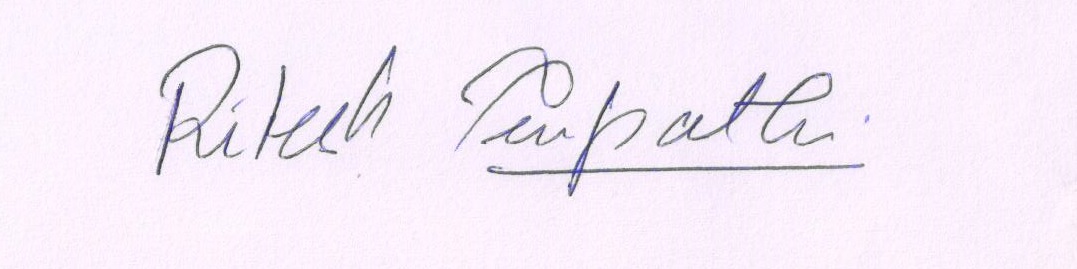 Ritesh Tripathi